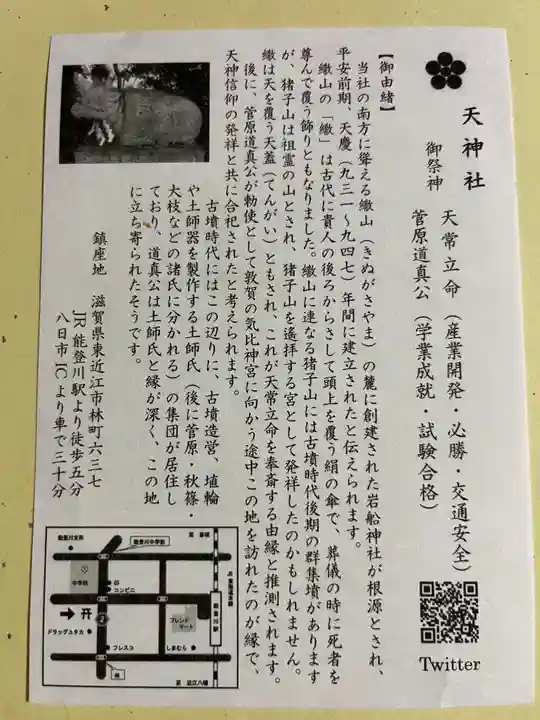 天神社
御祭神
天常立命(産業開発・必勝・交通安全)
菅原道真公(学業成就・試験合格)
Twitter
【御由緒】
当社の南方に聳える繖山(きぬがさやま)の麓に創建された岩船神社が根源とされ、
平安前期、天慶(九三一~九四七)年間に建立されたと伝えられます。
繖山の「繖」は古代に貴人の後ろからさして頭上を覆う絹の傘で、葬儀の時に死者を
尊んで覆う飾りともなりました。繖山に連なる猪子山には古墳時代後期の群集墳があります
が、猪子山は祖霊の山とされ、猪子山を遙拝する宮として発祥したのかもしれません。
繖は天を覆う天蓋(てんがい)ともされ、これが天常立命を奉斎する由縁と推測されます。
後に、菅原道真公が勅使として敦賀の気比神宮に向かう途中この地を訪れたのが縁で、
天神信仰の発祥と共に合祀されたと考えられます。
古墳時代にはこの辺りに、古墳造営、埴輪
や土師器を製作する土師氏(後に菅原・秋篠・
大枝などの諸氏に分かれる)の集団が居住し
ており、道真公は土師氏と縁が深く、この地
に立ち寄られたそうです。
鎮座地 滋賀県東近江市林町六三七
JR能登川駅より徒歩五分
八日市ICより車で三十分
能登川支所
能登川中学前
至 彦根
中学校
65
コンビニ
JR 東海道本線
能登川駅
フレンドマート
2
ドラッグユタカ
フレスコ
しまむら
林
至 近江八幡